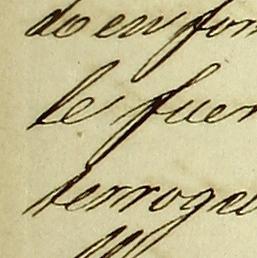 do en fon
le fuer
terroga